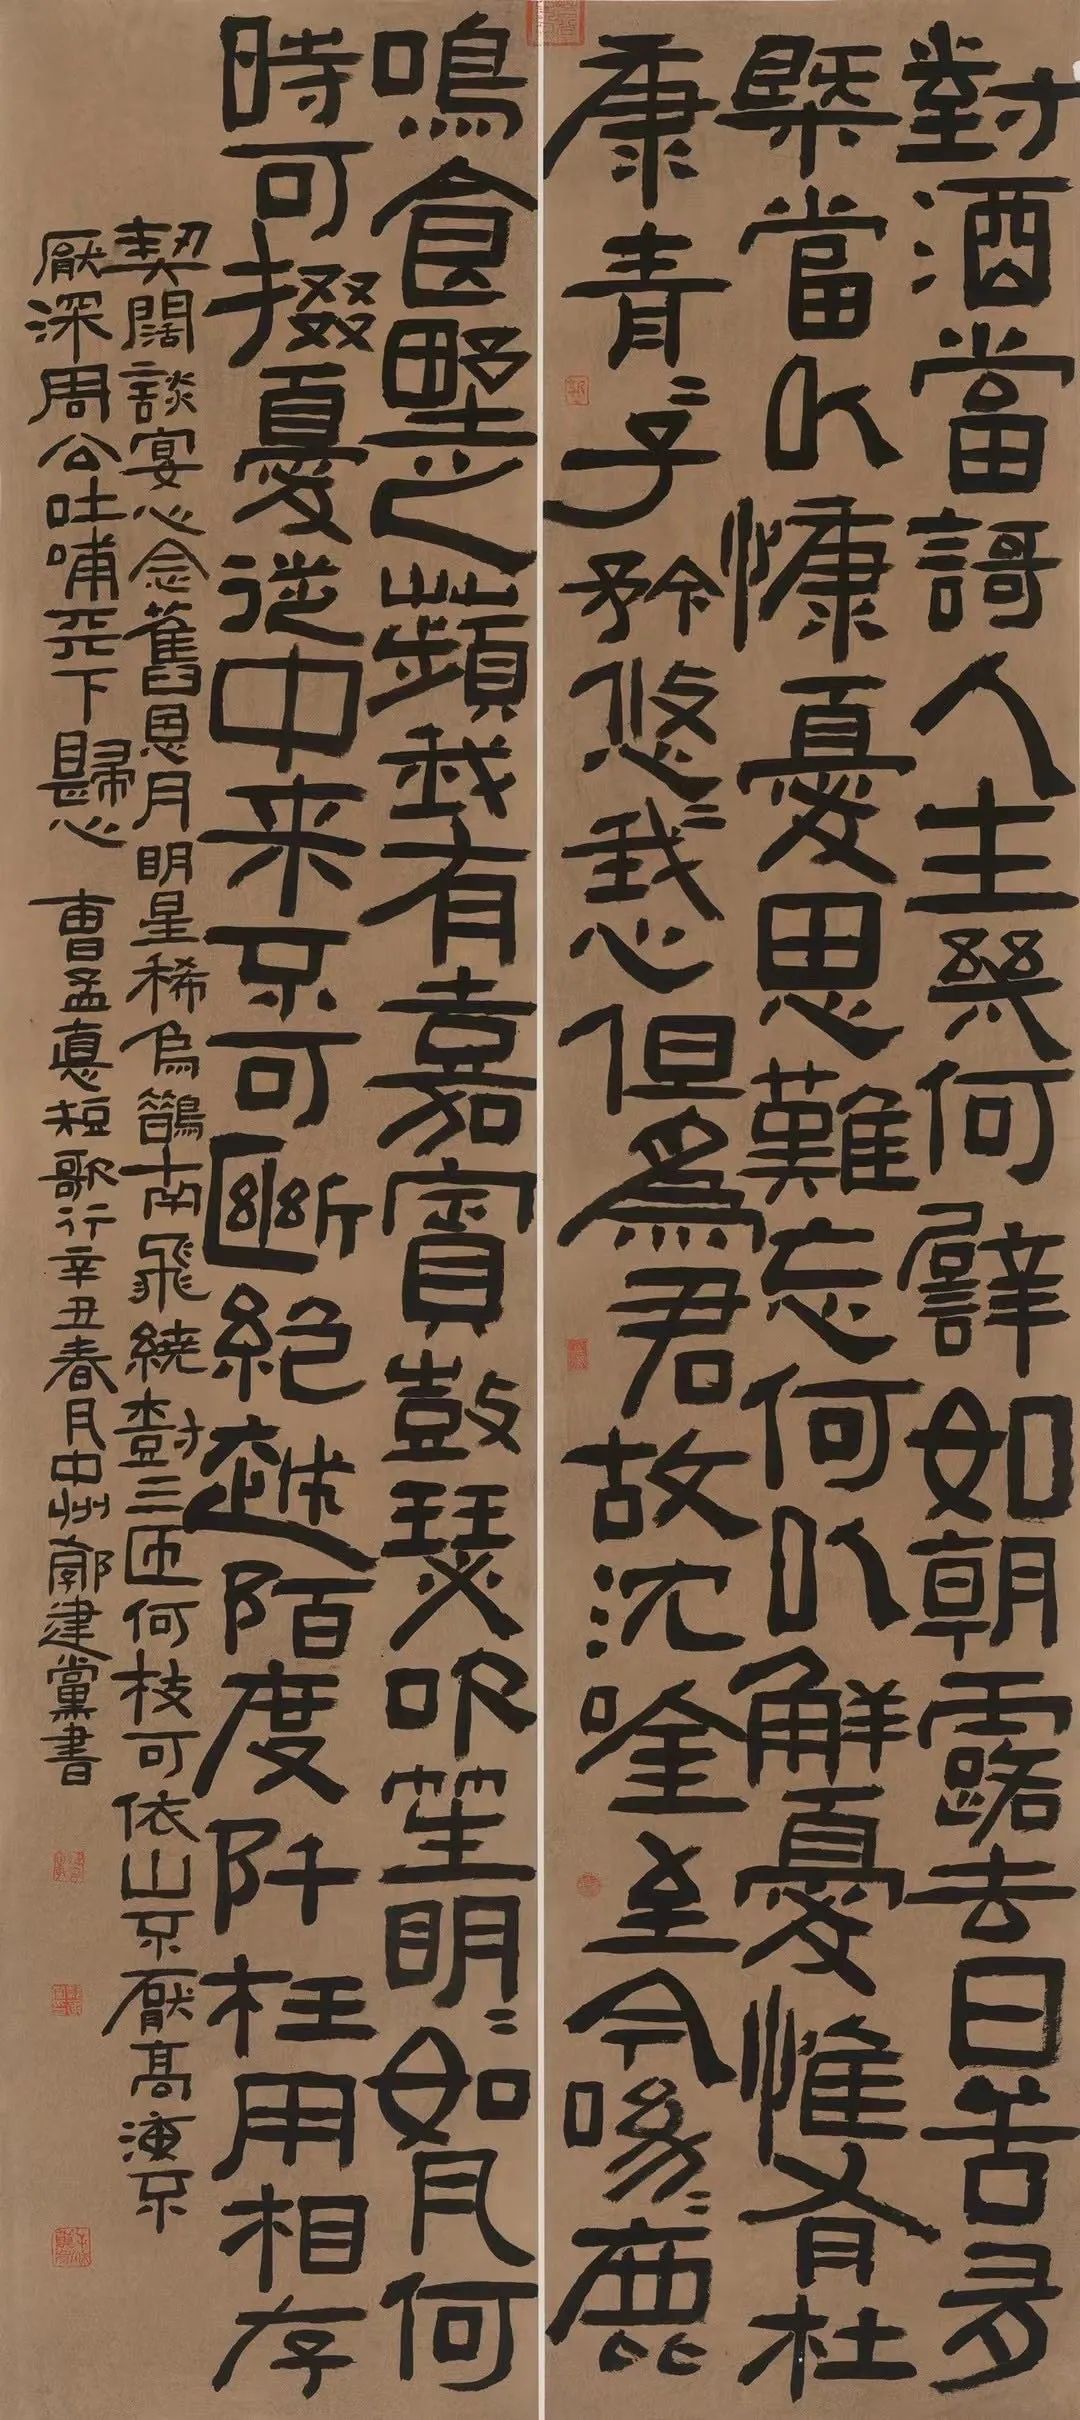 對酒當謌人生幾何譬如朝露去日苦多
槩當以慷憂思難忘何以解憂惟有杜
康青〻子矜悠〻我心但爲君故沈唫至今呦〻鹿
鳴食野之蘋我有嘉賓鼓瑟吹笙明〻如月何
時可掇憂從中来不可斷絕越陌度阡枉用相存
契闊談宴心念舊恩月明星稀烏鵲南飛繞樹三匝何枝可依山不厭高海不
厭深周公吐哺天下歸心 曹孟悳短歌行辛丑春月中州郭建黨書